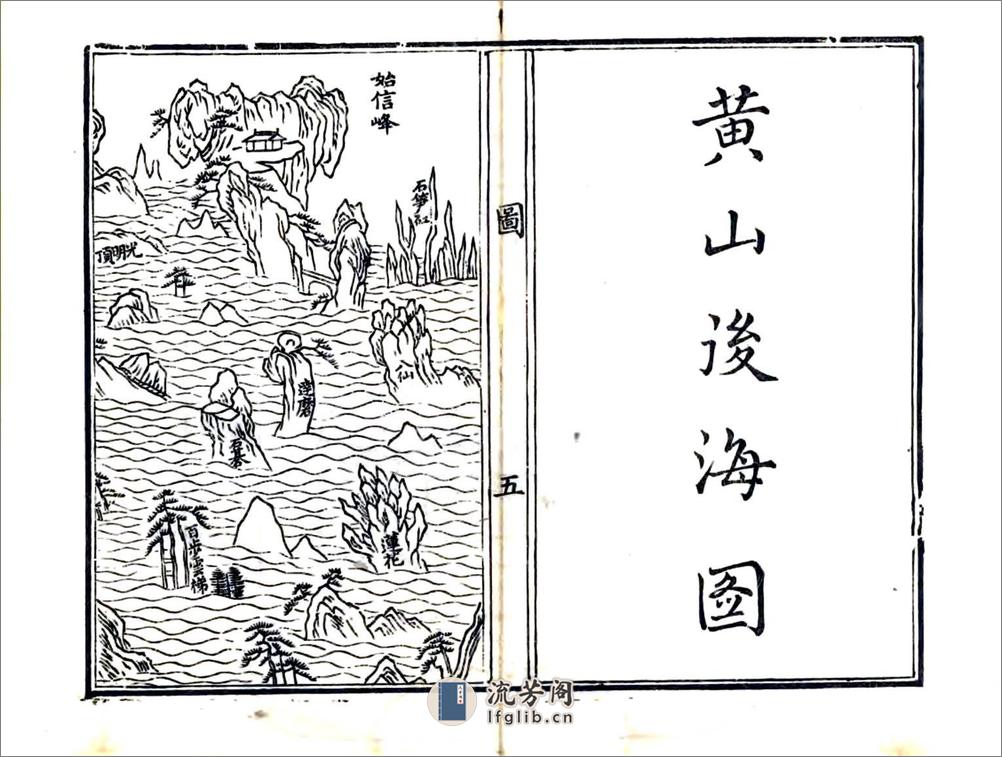 黄山後海图
圖
五
始信峰
石笋矼
光明頂
仙
達磨
石碁
蓮花
百步雲梯
流芳阁
lfglib.cn